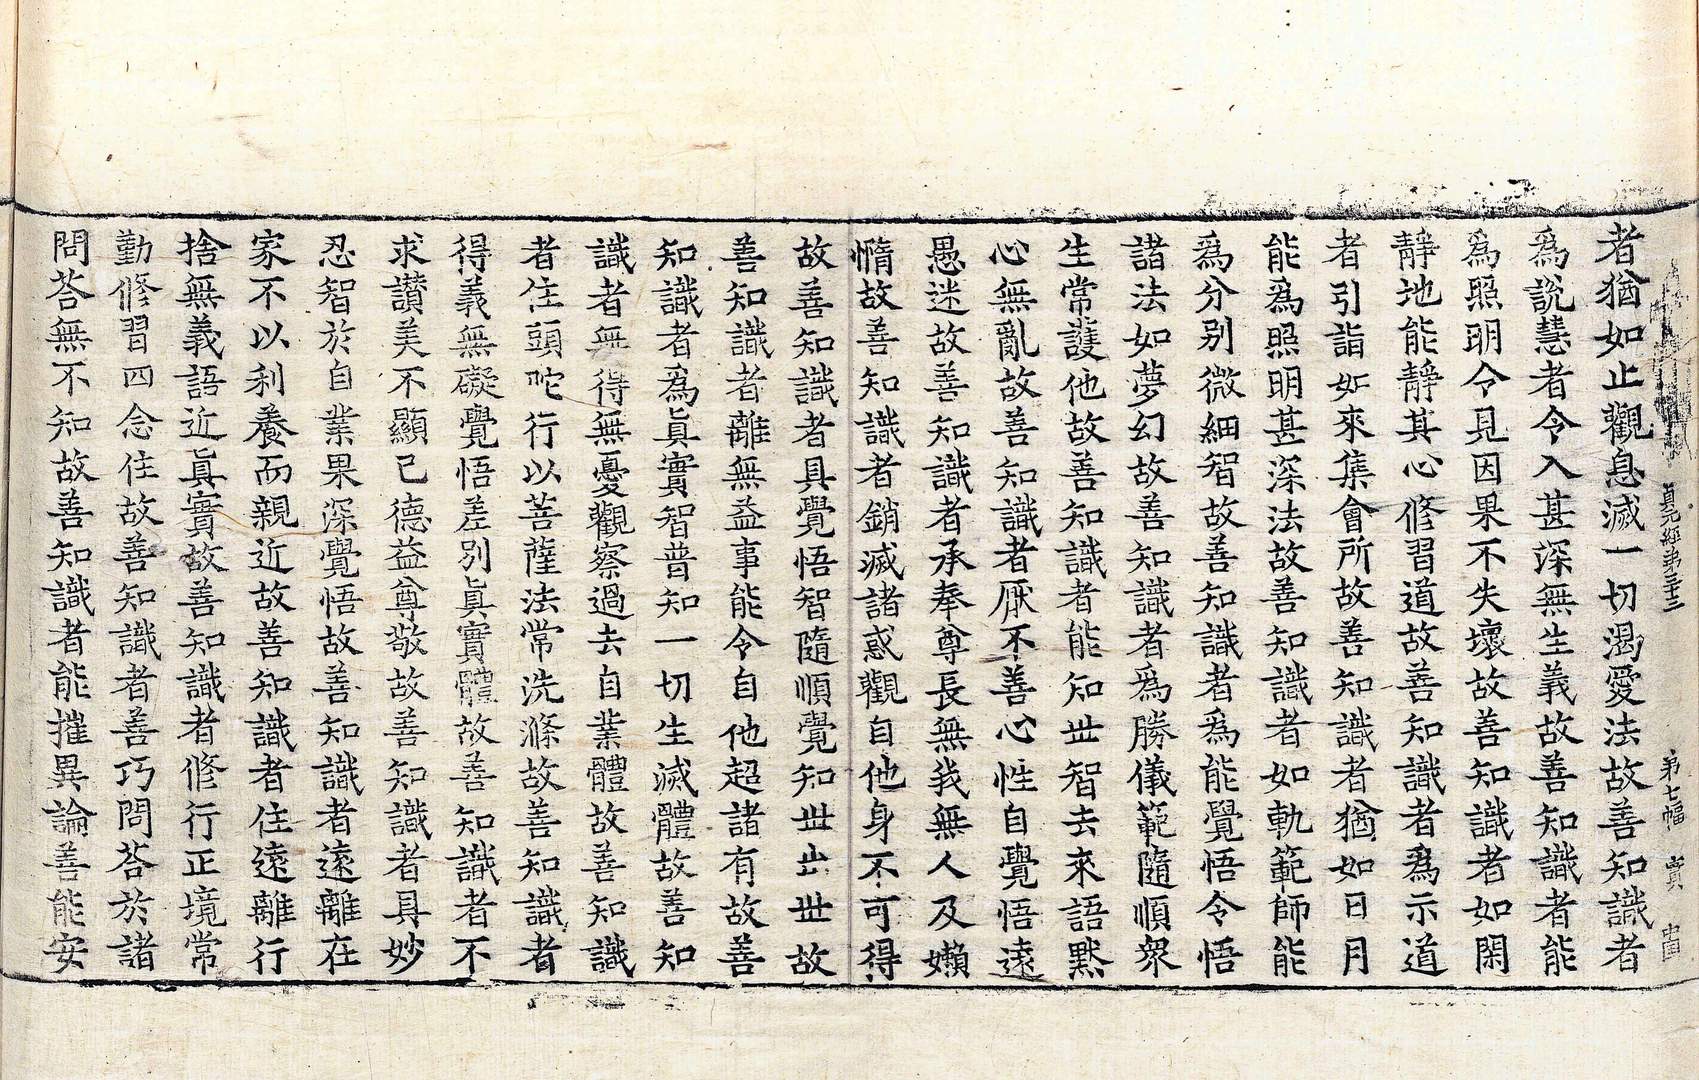 貞元經第三十三 第七幅 賓 中國
者猶如止觀息滅一切渴愛法故善知識者
爲說慧者令入甚深無生義故善知識者能
爲照明令見因果不失壞故善知識者如閑
靜地能靜其心修習道故善知識者爲示道
者引詣如來集會所故善知識者猶如日月
能爲照明甚深法故善知識者如軌範師能
爲分別微細智故善知識者爲能覺悟令悟
諸法如夢幻故善知識者爲勝儀範隨順衆
生常護他故善知識者能知世智去來語默
心無亂故善知識者厭不善心性自覺悟遠
愚迷故善知識者承奉尊長無我無人及嬾
惰故善知識者銷滅諸惑觀自他身不可得
故善知識者具覺悟智隨順覺知世出世故
善知識者離無益事能令自他超諸有故善
知識者爲眞實智普知一切生滅體故善知
識者無得無憂觀察過去自業體故善知識
者住頭陀行以菩薩法常洗滌故善知識者
得義無礙覺悟差別眞實體故善知識者不
求讃美不顯己德益尊敬故善知識者具妙
忍智於自業果深覺悟故善知識者遠離在
家不以利養而親近故善知識者住遠離行
捨無義語近眞實故善知識者修行正境常
勤修習四念住故善知識者善巧問荅於諸
問荅無不知故善知識者能摧異論善能安